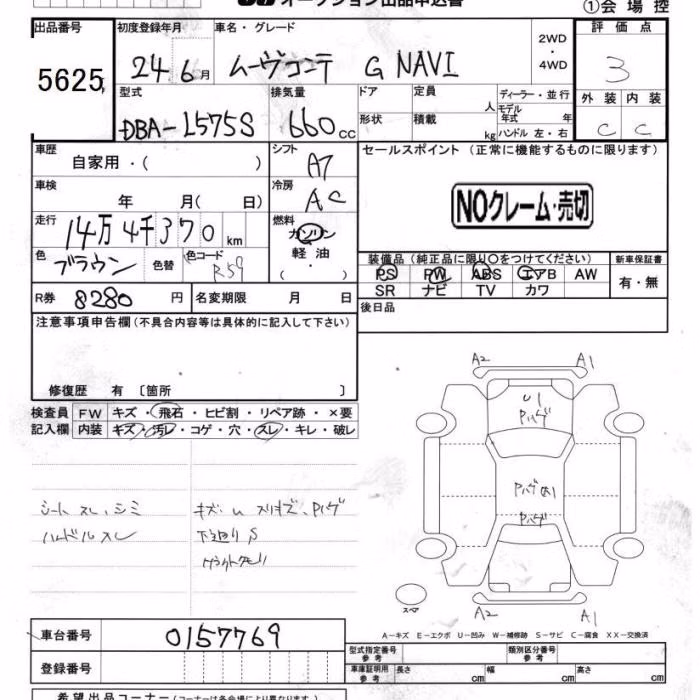 オークション出品申込書
①会場控
出品番号 初度登録年月 車名・グレード 2WD・4WD 評価点
5625 24年6月 ムーヴコンテ G NAVI 3
型式 排気量 ドア 定員 人 ディーラー・並行 外装 内装
DBA-L575S 660cc 形状 積載 kg モデル年式 年 ハンドル 左・右 C C
車歴 シフト セールスポイント(正常に機能するものに限ります)
自家用・( ) A7
車検 冷房 NOクレーム・売切
年 月( 日) AC
走行 燃料
14万4千370km ガソリン
軽油
( ・ )
色 色替 色コード
ブラウン R59
装備品(純正品に限り○をつけてください) 新車保証書
PS PW ABS エアB AW 有・無
SR ナビ TV カワ
R券 8280円 名変期限 月 日 後日品
注意事項申告欄(不具合内容等は具体的に記入して下さい)
修復歴 有〔箇所 〕
検査員 FW キズ・飛石・ヒビ割・リペア跡・×要
記入欄 内装 キズ・汚レ・コゲ・穴・スレ・キレ・破レ
シートスレ、シミ
ハンドルスレ
キズ・U スリキズ、Pハゲ
下廻りS
A2 A1
U1
Pハゲ
Pハゲ
Pハゲ
スペア
A2 A1
A-キズ E-エクボ U-凹み W-補修跡 S-サビ C-腐食 XX-交換済
車台番号 0157769
型式指定番号 参考 類別区分番号 参考
登録番号
車庫証明用 参考 長さ cm 幅 cm 高さ cm
希望出品コーナー(コーナーは各会場により異なります)